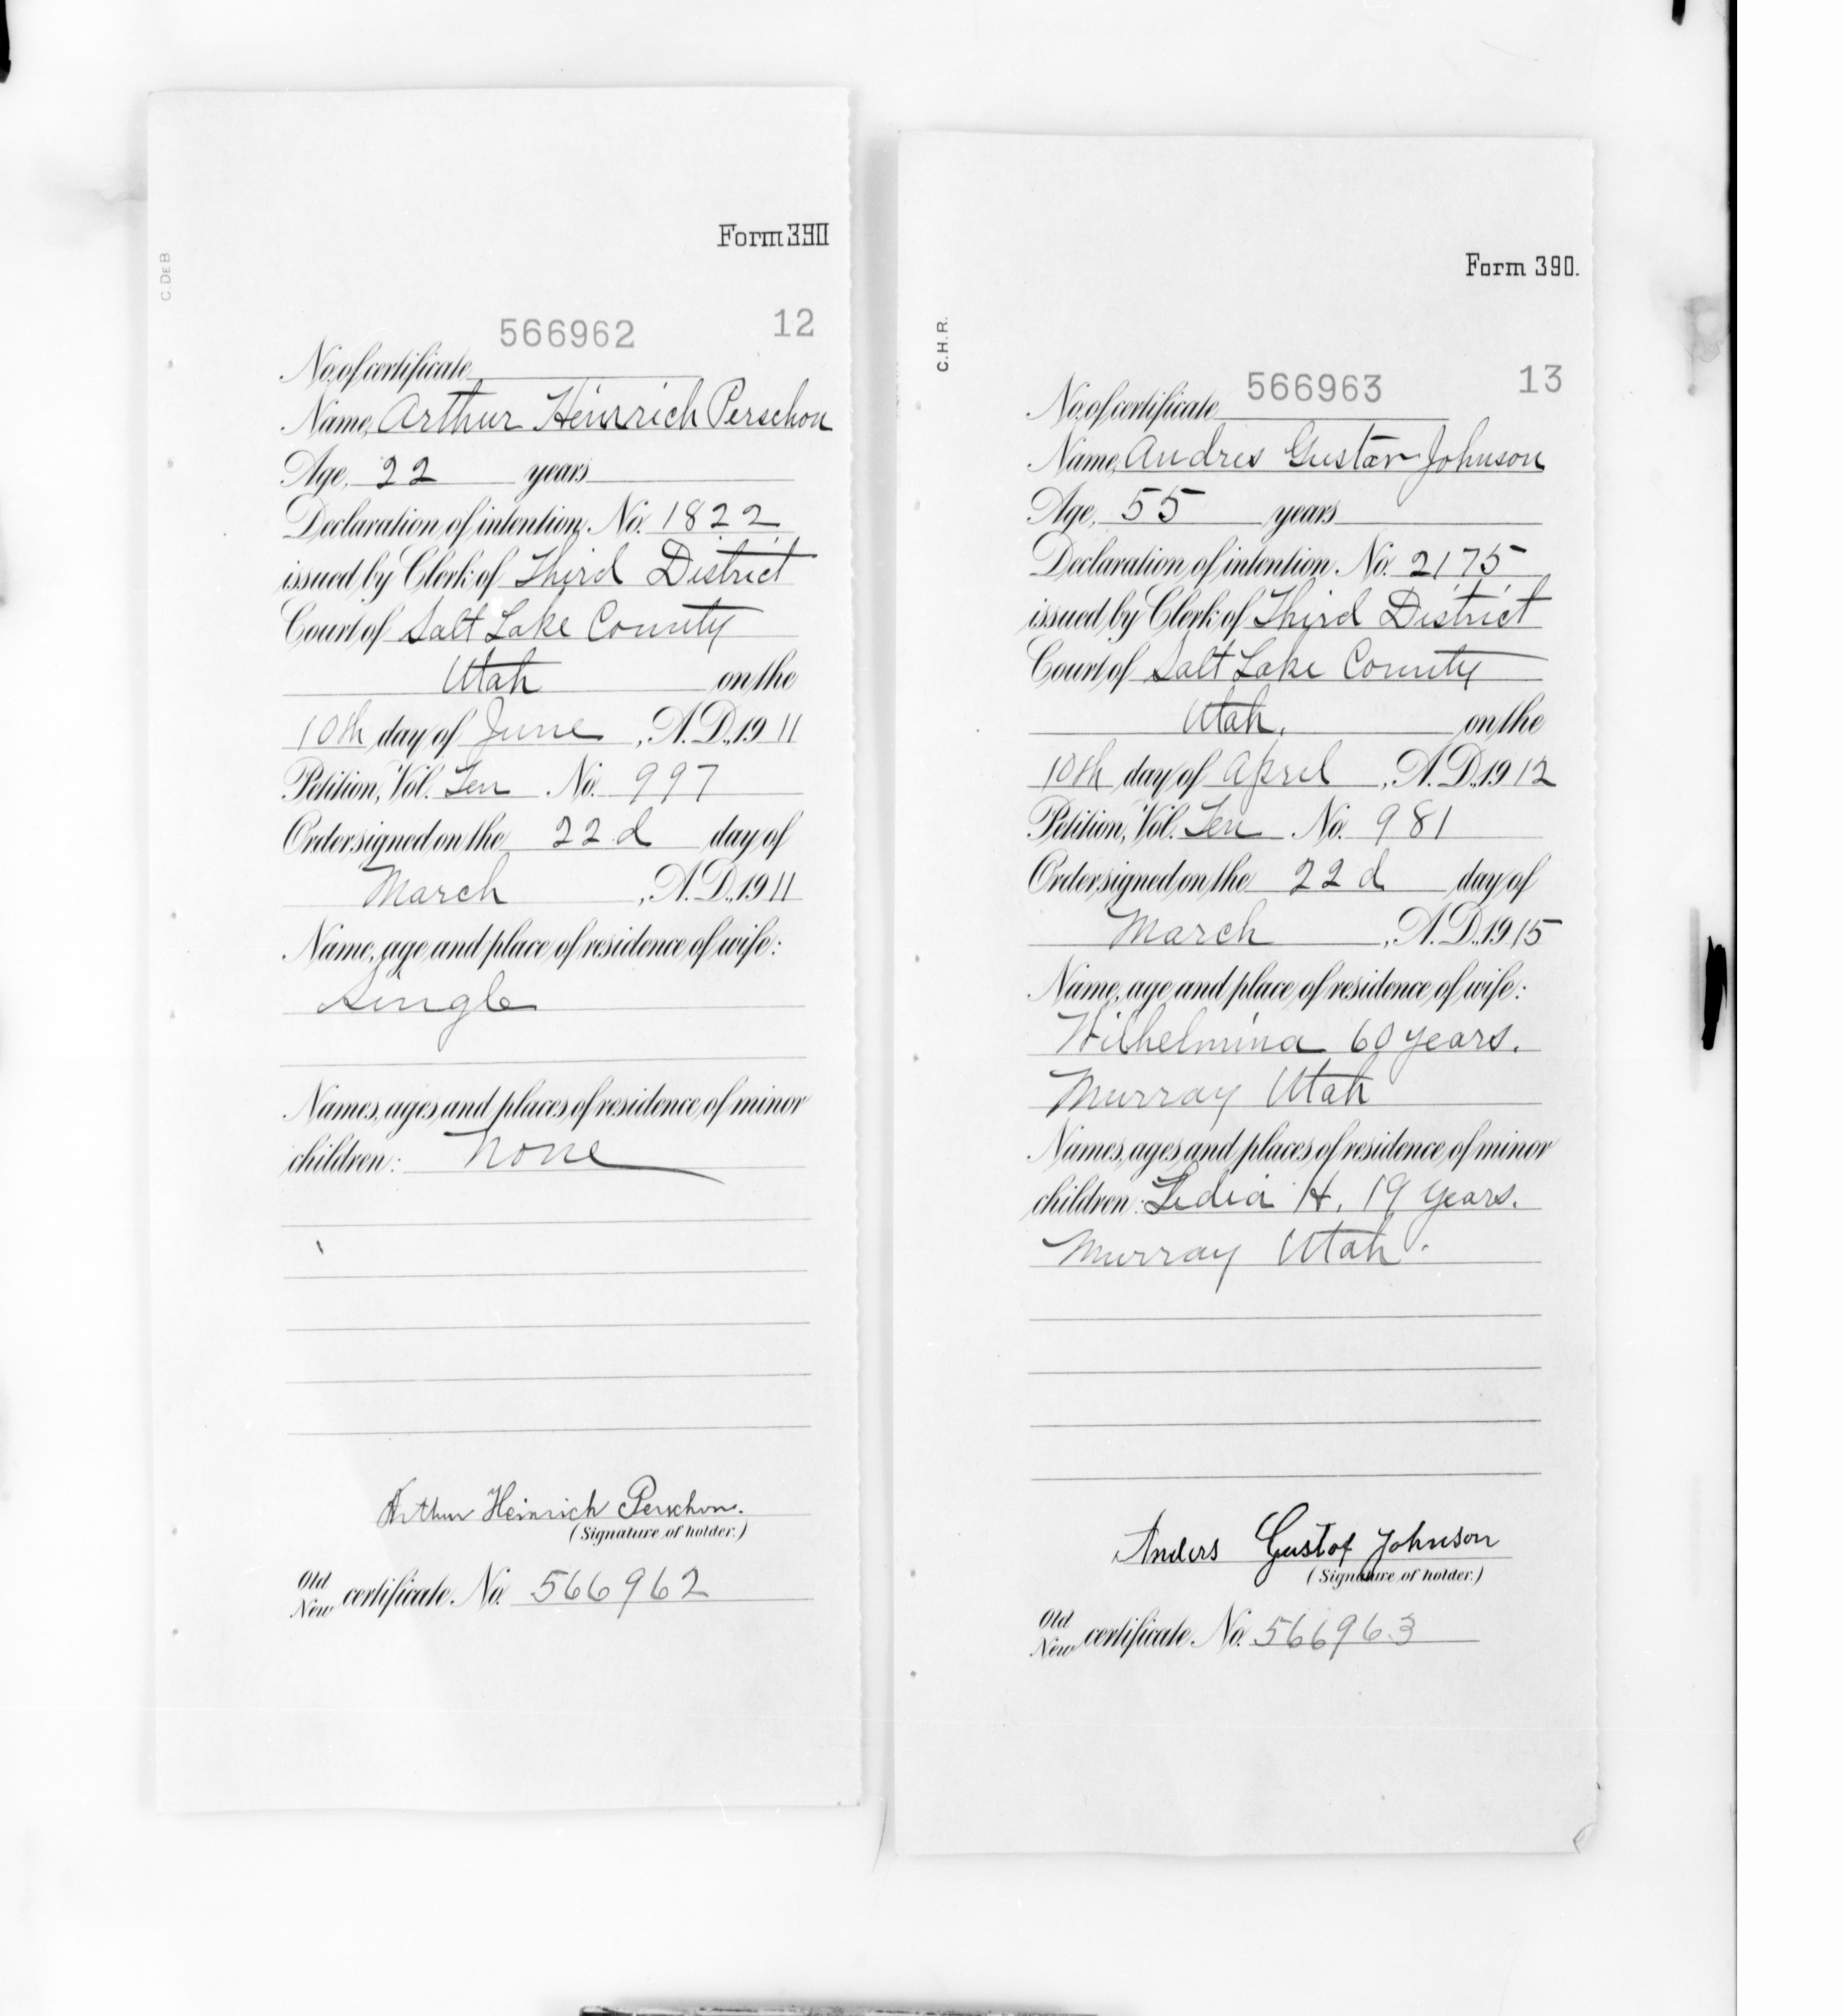 C.DEB
Form 390
566962 12
No. of certificate
Name, Arthur Heinrich Perschon
Age, 22 years
Declaration of intention, No. 1822
issued by Clerk of Third District
Court of Salt Lake County
Utah on the
10th day of June, A.D., 1911
Petition, Vol. Ten No. 997
Order signed on the 22d day of
March, A.D., 1911
Name, age and place of residence of wife:
Single
Names, ages and places of residence of minor
children: None
Arthur Heinrich Perschon.
(Signature of holder.)
Old
New certificate No. 566962
C.H.R.
Form 390.
566963 13
No. of certificate
Name, Andres Gustav Johnson
Age, 55 years
Declaration of intention, No. 2175
issued by Clerk of Third District
Court of Salt Lake County
Utah. on the
10th day of April, A.D., 1912
Petition, Vol. Ten No. 981
Order signed on the 22d day of
March, A.D., 1915
Name, age and place of residence of wife:
Wilhelmina 60 years.
Murray Utah
Names, ages and places of residence of minor
children: Lidia H. 19 years.
Murray Utah.
Anders Gustof Johnson
(Signature of holder.)
Old
New certificate No. 566963